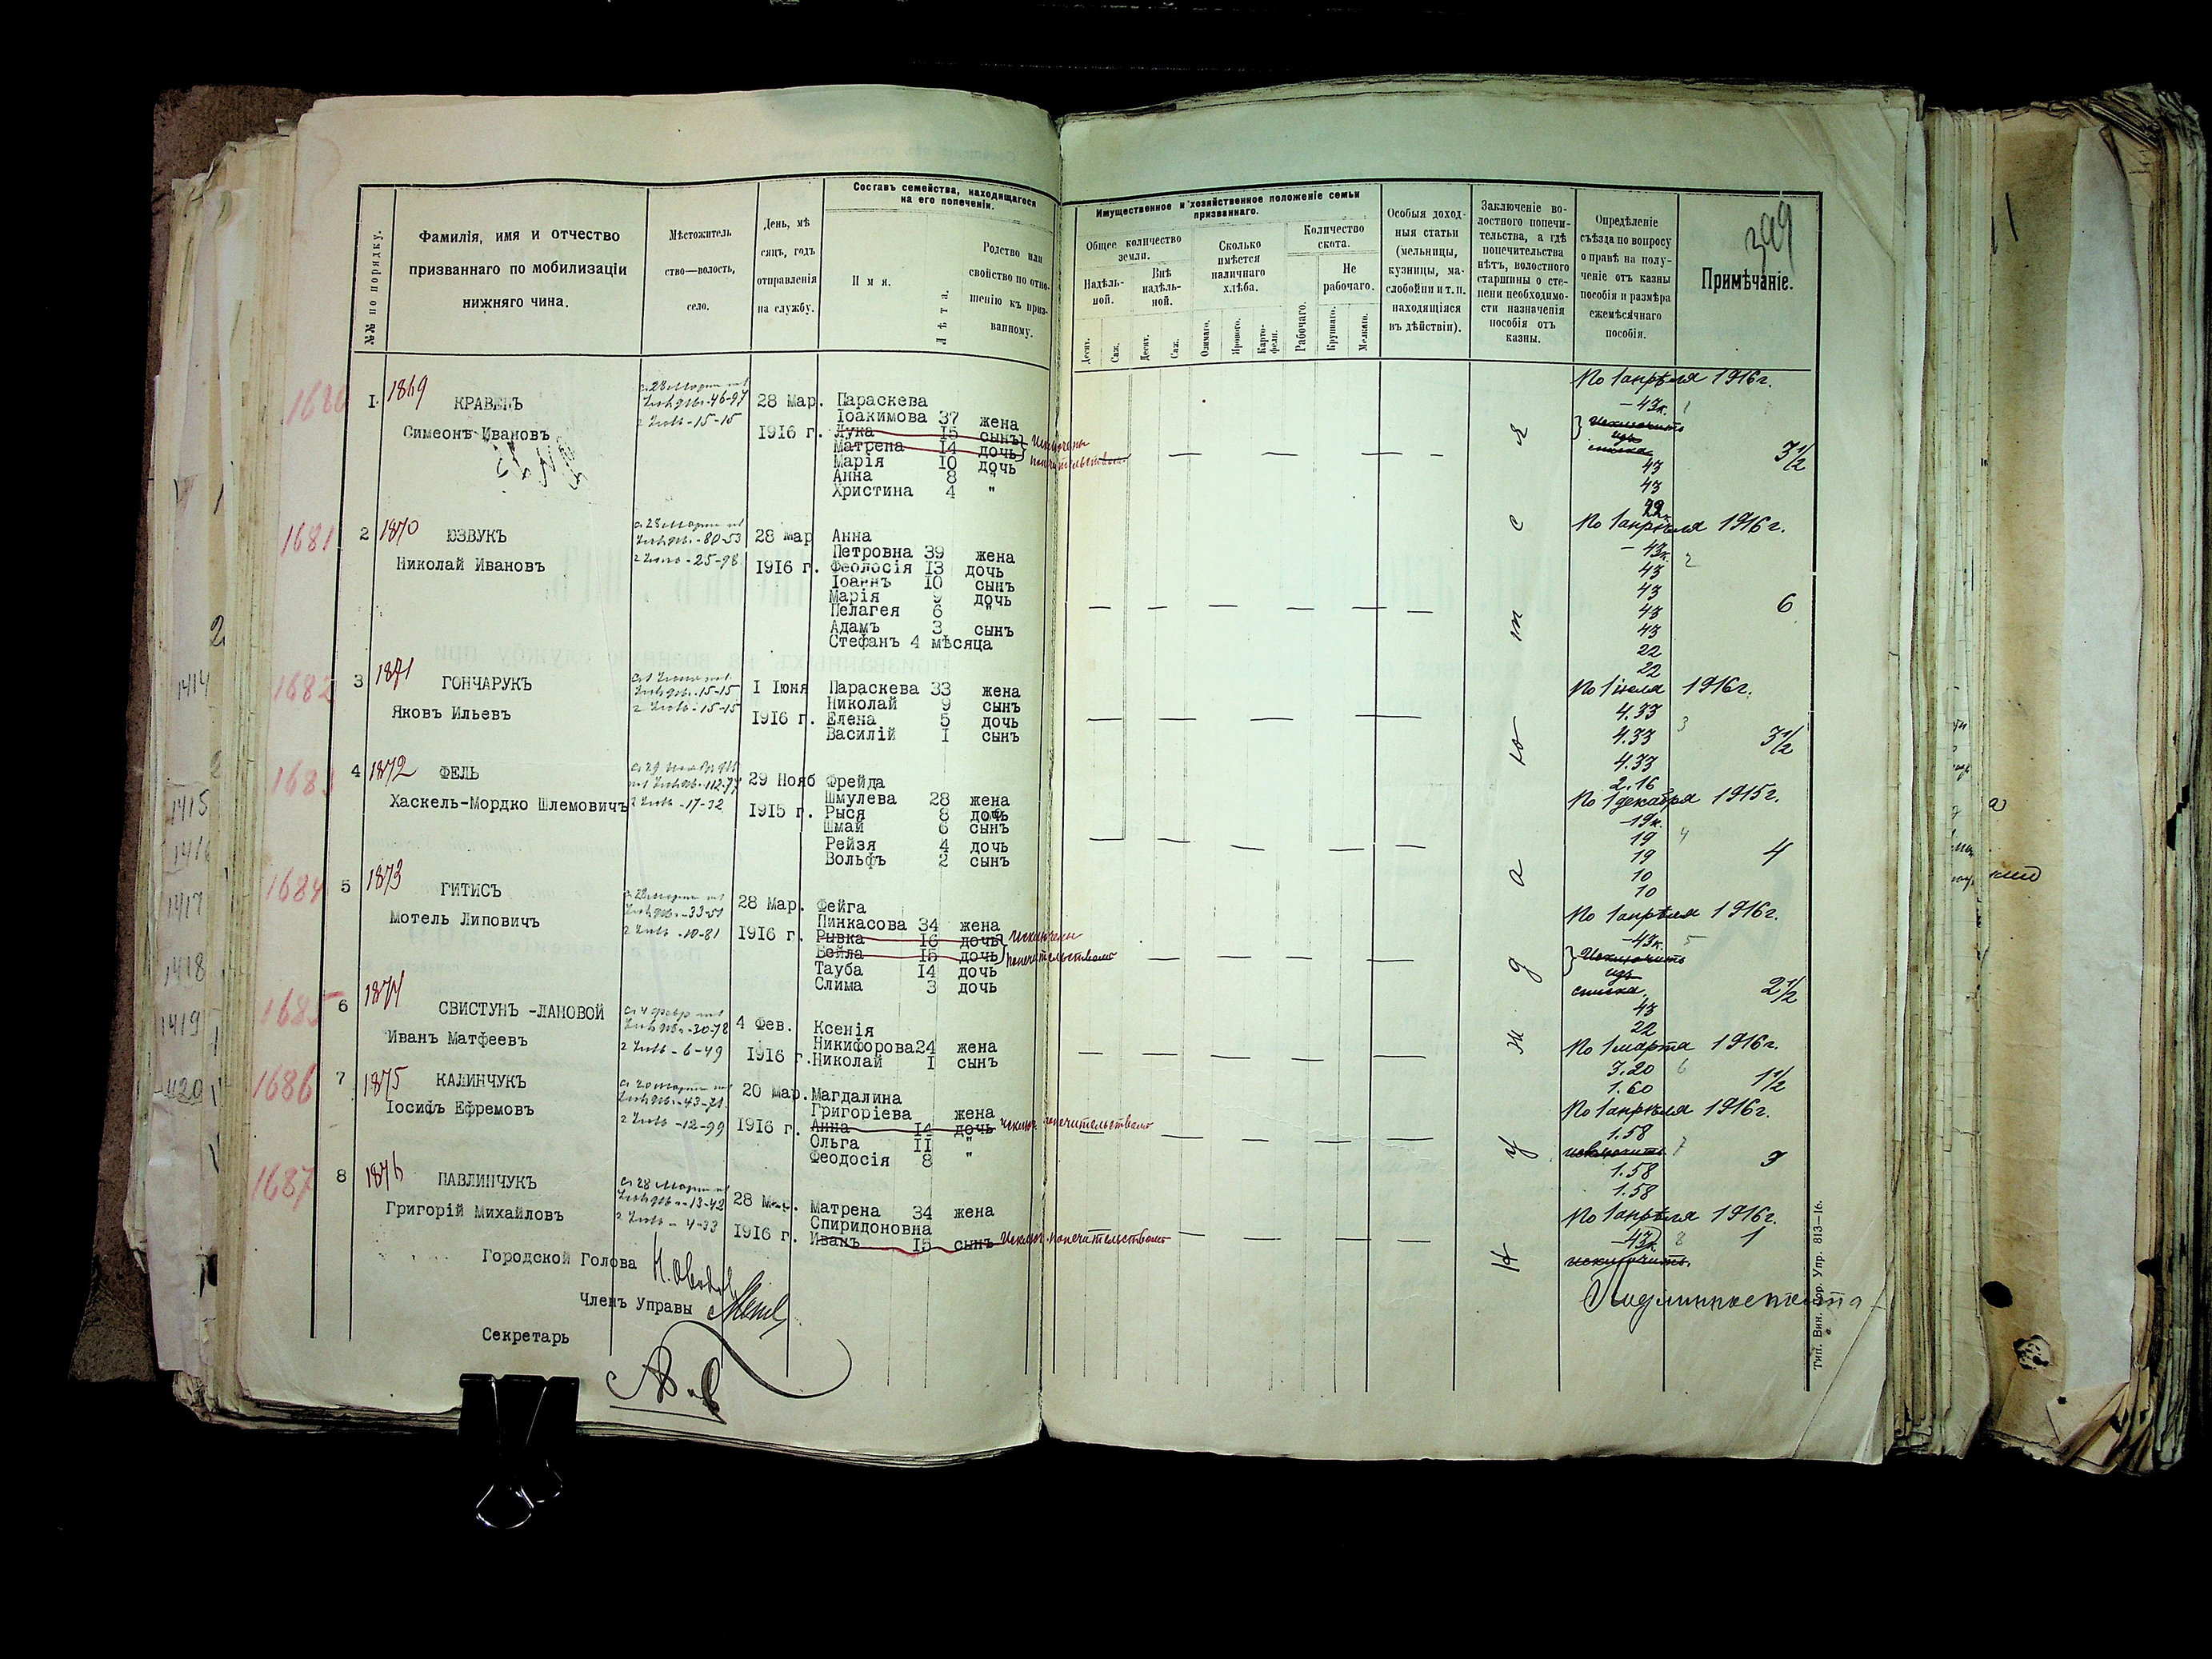 №№ по порядку.
Фамилія, имя и отчество
призваннаго по мобилизаціи
нижняго чина.
Мѣстожитель
ство—волость,
село.
День, мѣ
сяцъ, годъ
отправленія
на службу.
Составъ семейства, находящагося
на его попеченіи.
Имя.
Лѣта.
Родство или
свойство по отно-
шенію къ приз-
ванному.
Имущественное и хозяйственное положеніе семьи
призваннаго.
Общее количество
земли.
Надѣль-
ной.
Внѣ
надѣль-
ной.
Десят.
Саж.
Десят.
Саж.
Сколько
имѣется
наличнаго
хлѣба.
Озимаго.
Яроваго.
Карто-
фели.
Количество
скота.
Рабочаго.
Не
рабочаго.
Крупнаго.
Мелкаго.
Особыя доход-
ныя статьи
(мельницы,
кузницы, ма-
слобойни и т. п.
находящіяся
въ дѣйствіи).
Заключеніе во-
лостного попечи-
тельства, а гдѣ
попечительства
нѣтъ, волостного
старшины о сте-
пени необходимо-
сти назначенія
пособія отъ
казны.
Опредѣленіе
съѣзда по вопросу
о правѣ на полу-
ченіе отъ казны
пособія и размѣра
ежемѣсячнаго
пособія.
Примѣчаніе.
399
1680
1. 1869 КРАВЕЦЪ
Симеонъ Ивановъ
28 Мар.
1916 г.
Параскева
Іоакимова 37 жена
Лука 15 сынъ
Матрена 14 дочь
Исключены
попечительствомъ
Марія 10 дочь
Анна 8 "
Христина 4 "
По 1 апрѣля 1916 г.
-43 к. 1
Исключить
изъ
списка
43
43
22
3 1/2
1681
2 1870 ЮЗВУКЪ
Николай Ивановъ
28 мар
1916 г.
Анна
Петровна 39 жена
Феодосія 13 дочь
Іоаннъ 10 сынъ
Марія 9 дочь
Пелагея 6 "
Адамъ 3 сынъ
Стефанъ 4 мѣсяца
По 1 апрѣля 1916 г.
- 43 к. 2
43
43
43
43
22
22
6
1682
3 1871 ГОНЧАРУКЪ
Яковъ Ильевъ
1 Іюня
1916 г.
Параскева 33 жена
Николай 9 сынъ
Елена 5 дочь
Василій 1 сынъ
По 1 іюля 1916 г.
4.33 3
4.33
4.33
2.16
3 1/2
1683
4 1872 ФЕЛЬ
Хаскель-Мордко Шлемовичъ
29 Нояб
1915 г.
Фрейда
Шмулева 28 жена
Рыся 8 дочь
Шмай 6 сынъ
Рейзя 4 дочь
Вольфъ 2 сынъ
По 1 декабря 1915 г.
-19 к.
19 4
19
10
10
4
1684
5 1873 ГИТИСЪ
Мотель Липовичъ
28 Мар.
1916 г.
Фейга
Пинкасова 34 жена
Рывка 16 дочь
Бейла 15 дочь
Исключены
попечительствомъ
Тауба 14 дочь
Слима 3 дочь
По 1 апрѣля 1916 г.
-43 к. 5
Исключить
изъ
списка.
43
22
2 1/2
1685
6 1874 СВИСТУНЪ -ЛАНОВОЙ
Иванъ Матфеевъ
4 Фев.
1916 г.
Ксенія
Никифорова 24 жена
Николай 1 сынъ
По 1 марта 1916 г.
3.20 6
1.60
1 1/2
1686
7 1875 КАЛИНЧУКЪ
Іосифъ Ефремовъ
20 мар.
1916 г.
Магдалина
Григоріева жена
Анна 14 дочь исключ. попечительствомъ
Ольга 11 "
Феодосія 8 "
По 1 апрѣля 1916 г.
1.58
исключить 7
1.58
1.58
3
1687
8 1876 ПАВЛИНЧУКЪ
Григорій Михайловъ
28 Мар.
1916 г.
Матрена 34 жена
Спиридоновна
Иванъ 15 сынъ Исключ. попечительствомъ
По 1 апрѣля 1916 г.
-43 к. 8
исключить.
1
Нуждаются
Городской Голова
Членъ Управы
Секретарь
Тип. Вин. Гор. Упр. 813—16.
1414
1415
1416
1417
1418
1419
1420